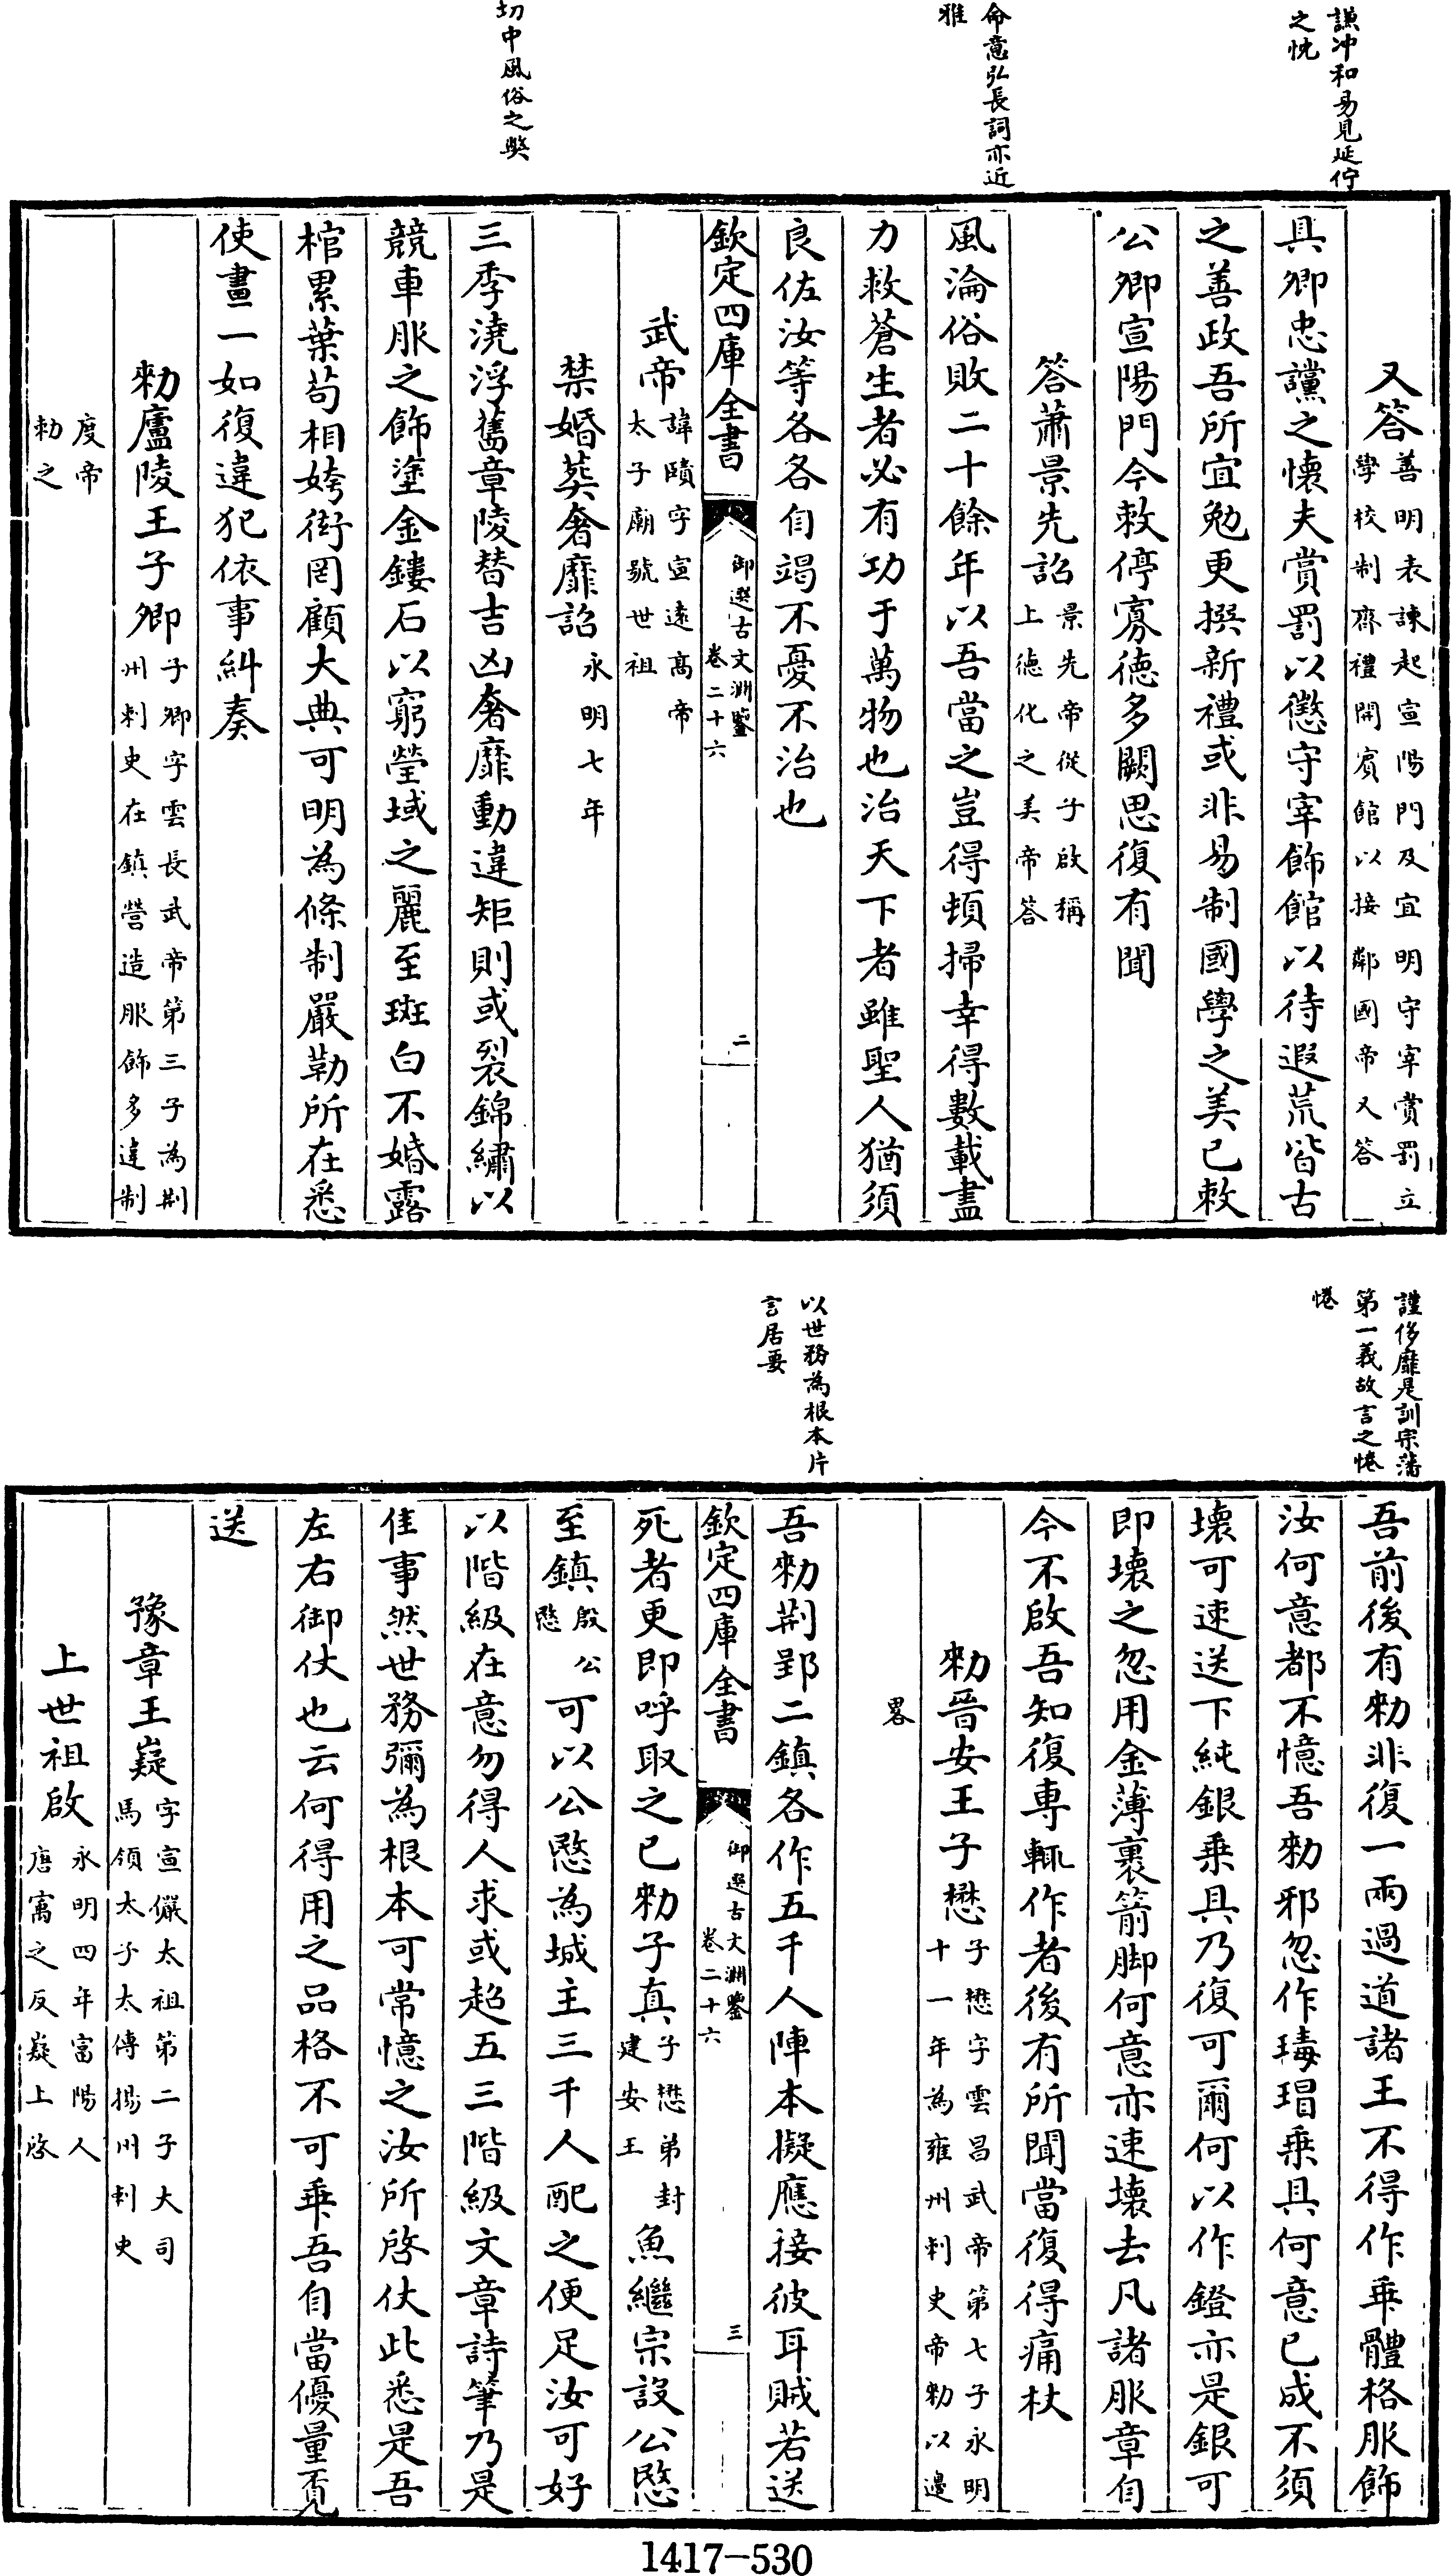 謙沖和易見延佇
之忱
命意弘長詞亦近
雅
切中風俗之獘
又答善明表諫起宣陽門及宜明守宰賞罰立
學校制齊禮開賔館以接鄰國帝又答
具卿忠讜之懷夫賞罰以懲守宰飾館以待遐荒皆古
之善政吾所宜勉更撰新禮或非易制國學之美已敕
公卿宣陽門今敕停寡德多闕思復有聞
答蕭景先詔景先帝從子啟稱
上徳化之美帝答
風淪俗敗二十餘年以吾當之豈得頓掃幸得數載盡
力救蒼生者必有功于萬物也治天下者雖聖人猶須
良佐汝等各各自竭不憂不治也
欽定四庫全書
御選古文淵鑒
卷二十六
二
武帝諱賾字宣遠髙帝
太子廟號世祖
禁婚葬奢靡詔永明七年
三季澆浮舊章陵替吉凶奢靡動違矩則或裂錦繡以
競車服之飾塗金鏤石以窮塋域之麗至斑白不婚露
棺累葉茍相姱衒罔顧大典可明為條制嚴勒所在悉
使畫一如復違犯依事糾奏
勅廬陵王子卿子卿字雲長武帝第三子為荆
州刺史在鎮營造服飾多違制
度帝
勅之
謹侈靡是訓宗藩
第一義故言之惓
惓
以世務為根本片
言居要
吾前後有勅非復一兩過道諸王不得作乖體格服飾
汝何意都不憶吾勅邪忽作瑇瑁乗具何意已成不須
壞可速送下純銀乗具乃復可爾何以作鐙亦是銀可
即壞之忽用金薄裹箭脚何意亦速壞去凡諸服章自
今不啟吾知復専輒作者後有所聞當復得痛杖
勅晉安王子懋子懋字雲昌武帝第七子永明
十一年為雍州刺史帝勅以邊
畧
吾勅荆郢二鎮各作五千人陣本擬應接彼耳賊若送
欽定四庫全書
御選古文淵鑒
卷二十六
三
死者更即呼取之已勅子真子懋弟封
建安王魚繼宗設公愍
至鎮殷公
愍可以公愍為城主三千人配之便足汝可好
以階級在意勿得人求或超五三階級文章詩筆乃是
佳事然世務彌為根本可常憶之汝所啓仗此悉是吾
左右御仗也云何得用之品格不可乖吾自當優量覔
送
豫章王嶷字宣儼太祖第二子大司
馬領太子太傅揚州刺史
上世祖啟永明四年富陽人
唐㝢之反嶷上啓
1417-530